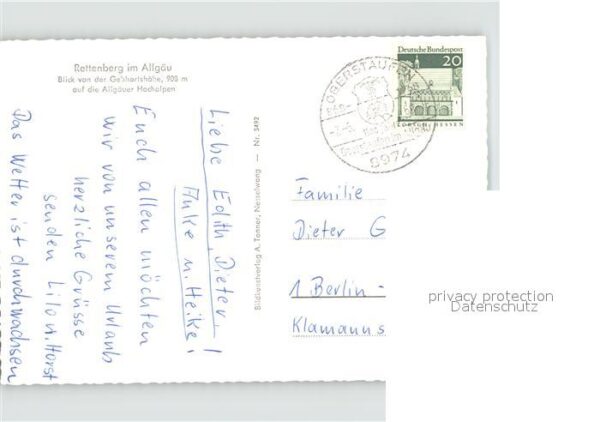 Rettenberg im Allgäu
Blick von der Geißhartshöhe, 908 m
auf die Allgäuer Hochalpen
Liebe Edith, Dieter,
Anke u. Heike!
Euch allen möchten
wir von unserem Urlaub
herzliche Grüsse
senden Lilo u. Horst
Das Wetter ist durchwachsen
Bildkunstverlag A. Tanner, Nesselwang — Nr. 5492
OBERSTAUFEN
8974
Deutsche Bundespost
20
LORSCH, HESSEN
Familie
Dieter G
1 Berlin-
Klamanns
privacy protection
Datenschutz